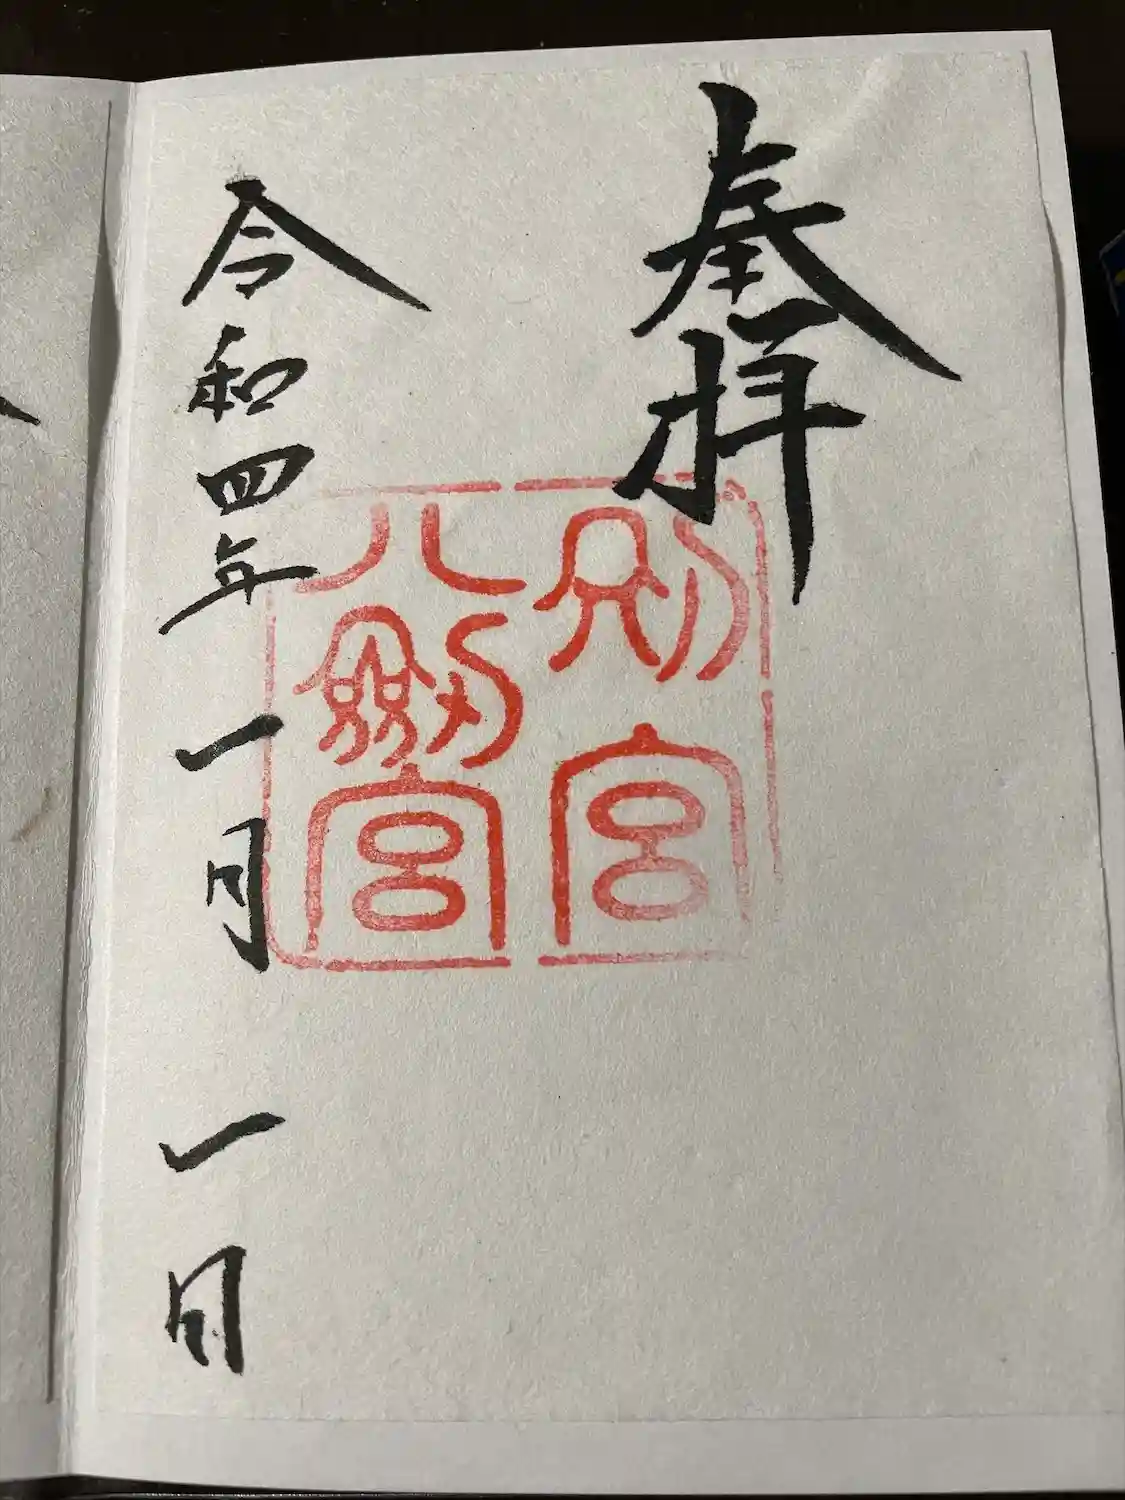 奉拝
別宮
八劔宮
令和四年一月一日